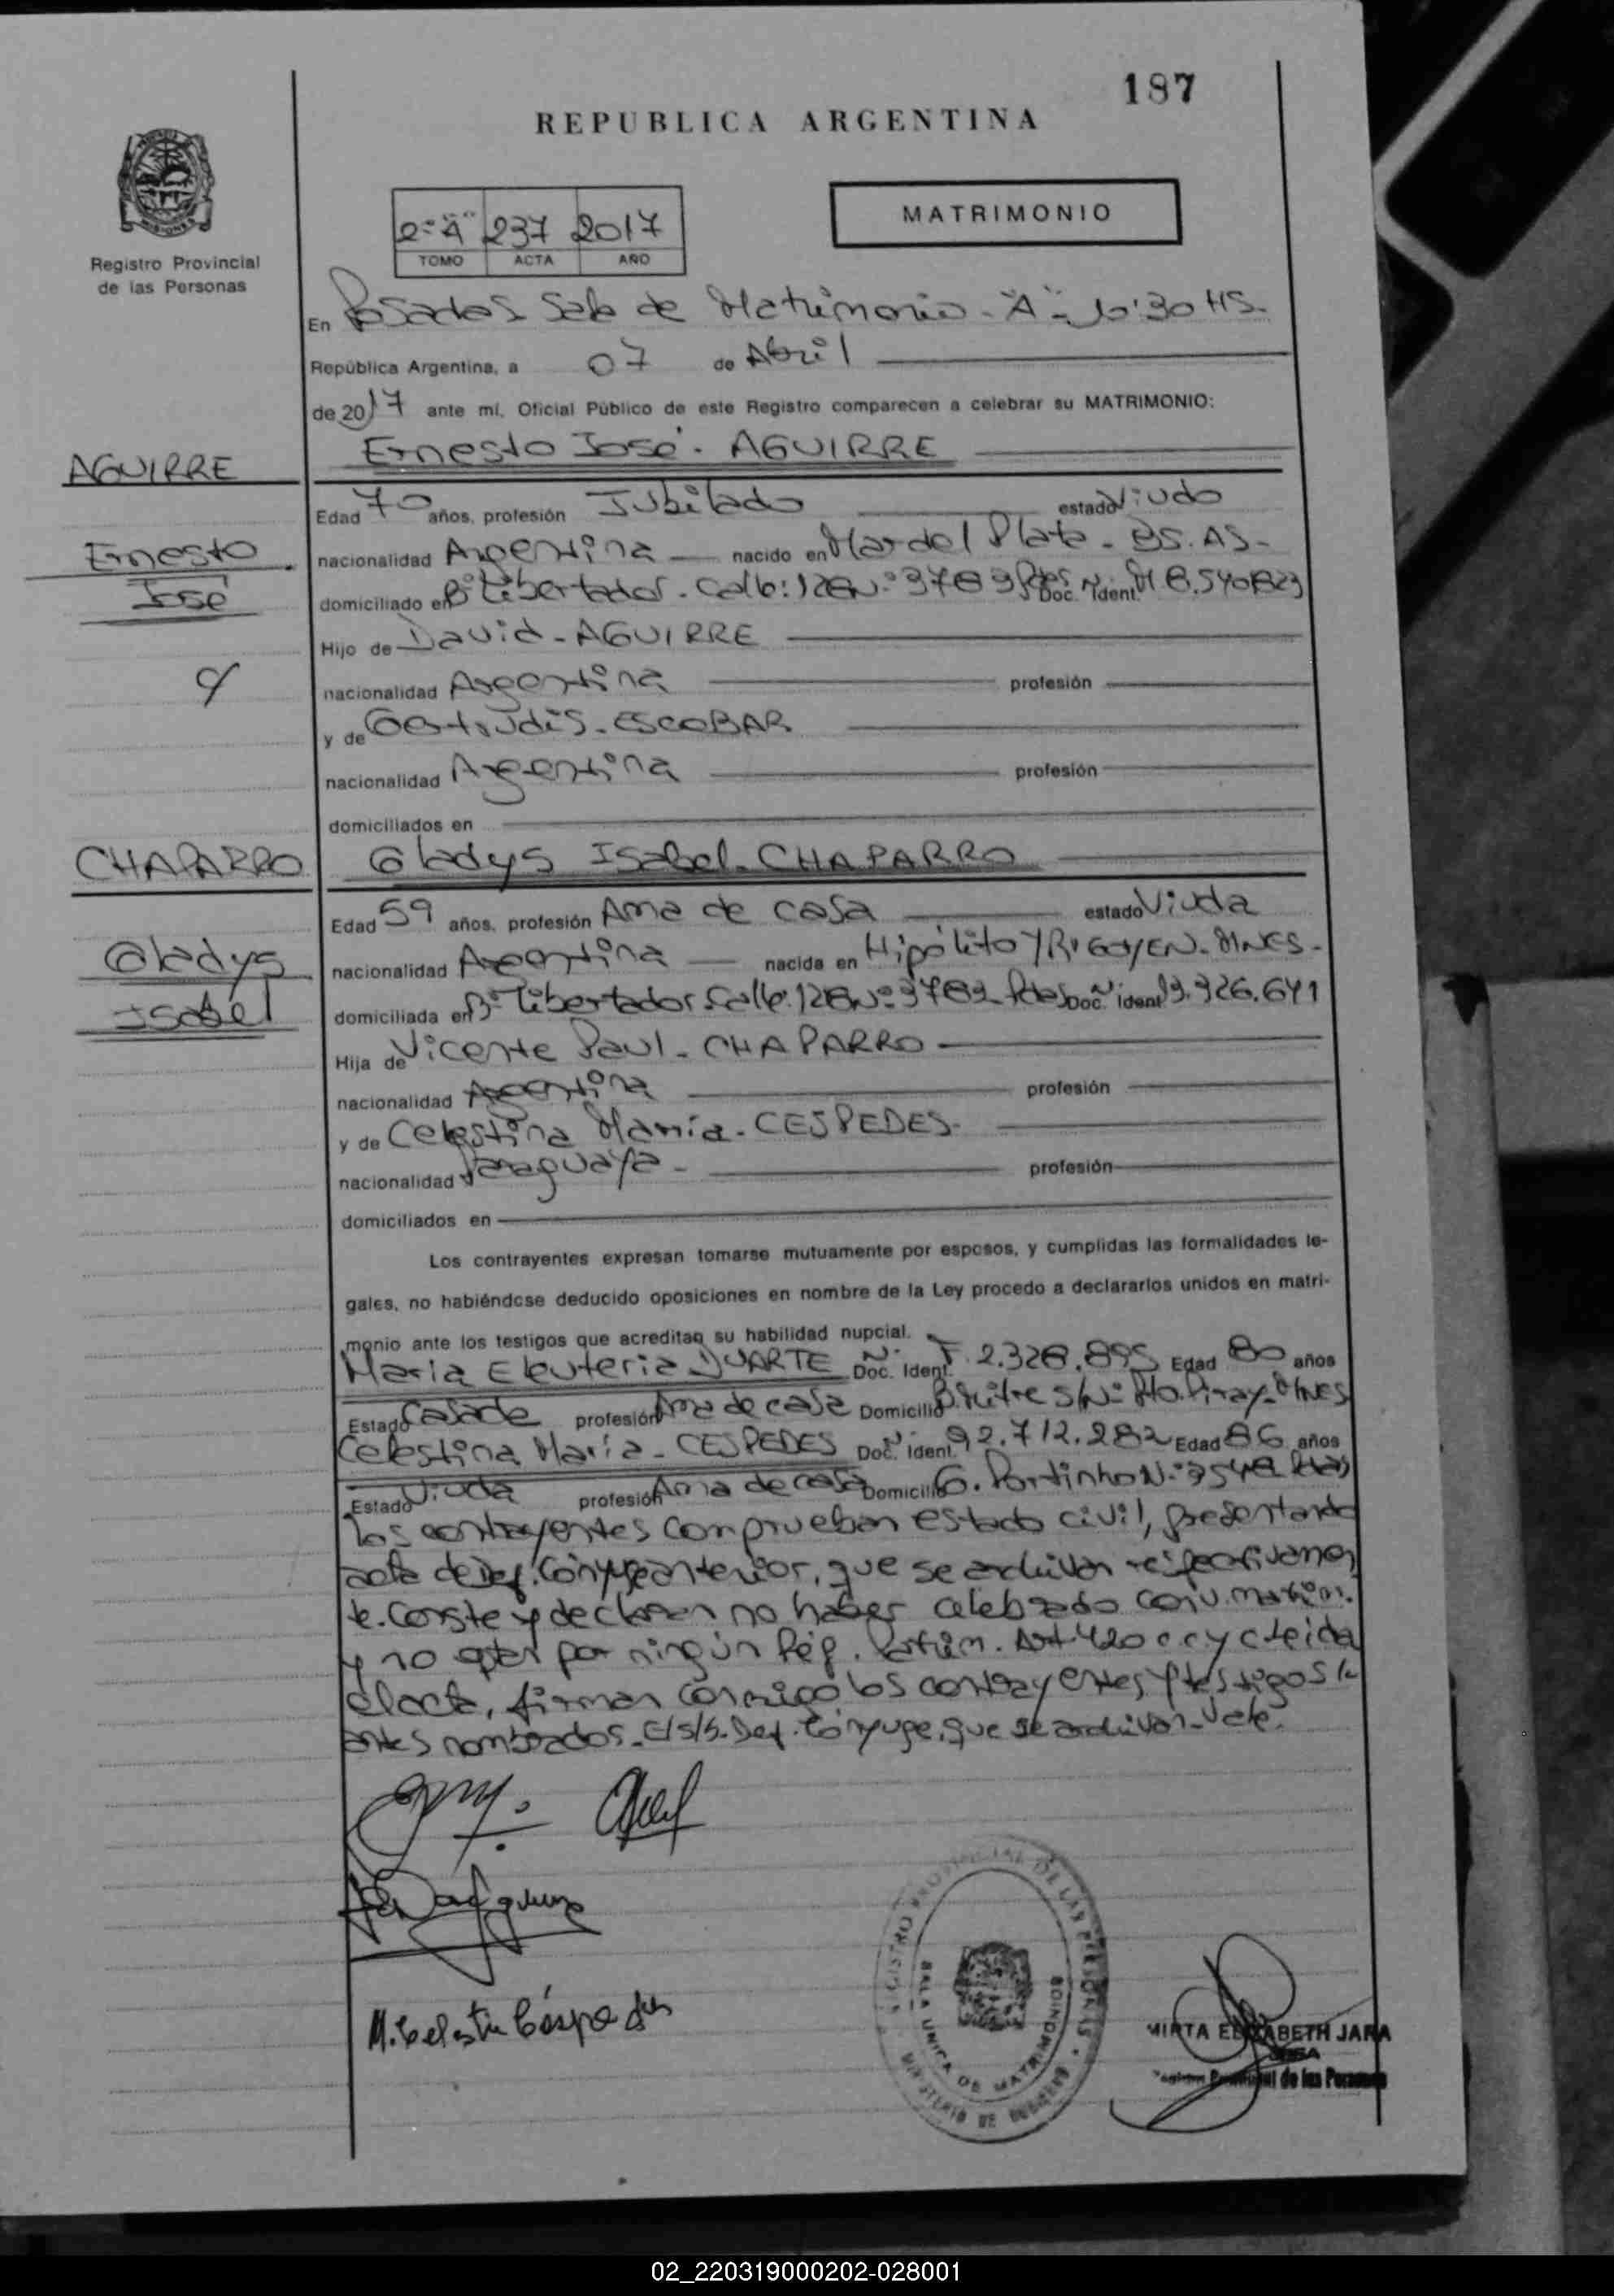 187
REPUBLICA ARGENTINA
MATRIMONIO
2º "A" 237 2017
TOMO ACTA AÑO
Registro Provincial
de las Personas
En Posadas Sala de Matrimonio - "A" - 10:30 HS-
República Argentina, a 07 de Abril
de 2017 ante mí, Oficial Público de este Registro comparecen a celebrar su MATRIMONIO:
Ernesto José - AGUIRRE
AGUIRRE
Edad 70 años, profesión Jubilado estado Viudo
Ernesto
nacionalidad Argentina nacido en Mar del Plata - BS. AS-
José
domiciliado en Bº Libertador - Calle: 128 Nº 3789 Pdas Doc. Nº Ident. M 8.540.823
Hijo de David - AGUIRRE
nacionalidad Argentina profesión
y de Gertrudis - ESCOBAR
nacionalidad Argentina profesión
domiciliados en
CHAPARRO
Gladys Isabel - CHAPARRO
Edad 59 años, profesión Ama de casa estado Viuda
Gladys
nacionalidad Argentina nacida en Hipólito YRIGOYEN - MNES-
Isabel
domiciliada en Bº Libertador Calle: 128 Nº 3789 Pdas Doc. Nº Ident. 13.926.641
Hija de Vicente Paul - CHAPARRO
nacionalidad Argentina profesión
y de Celestina María - CESPEDES-
nacionalidad Paraguaya - profesión
domiciliados en
Los contrayentes expresan tomarse mutuamente por esposos, y cumplidas las formalidades le-
gales, no habiéndose deducido oposiciones en nombre de la Ley procedo a declararlos unidos en matri-
monio ante los testigos que acreditan su habilidad nupcial.
María Eleuteria DUARTE Doc. Nº Ident. F. 2.328.895 Edad 80 años
Estado Casada profesión Ama de casa Domicilio B. Mitre S/Nº Pto. Piray - Mnes
Celestina María - CESPEDES Doc. Nº Ident. 92.712.282 Edad 86 años
Estado Viuda profesión Ama de casa Domicilio G. Portinho Nº 3548 Pdas
los contrayentes comprueban estado civil, presentando
acta de Def. Cónyuge anterior, que se archivan respectivamen
te. Conste y declaran no haber celebrado conv. matrim.
y no optar por ningún Rég. Patrim. Art 420 c.c y c leida
el acta, firman conmigo los contrayentes y testigos
antes nombrados. E/s/s. Def. Cónyuge, que se archivan - Vale.
M. Celestin Céspedes
REGISTRO PROVINCIAL DE LAS PERSONAS
SALA UNICA DE MATRIMONIOS
MINISTERIO DE GOBIERNO
MIRTA ELIZABETH JARA
Registro Provincial de las Personas
02_220319000202-028001